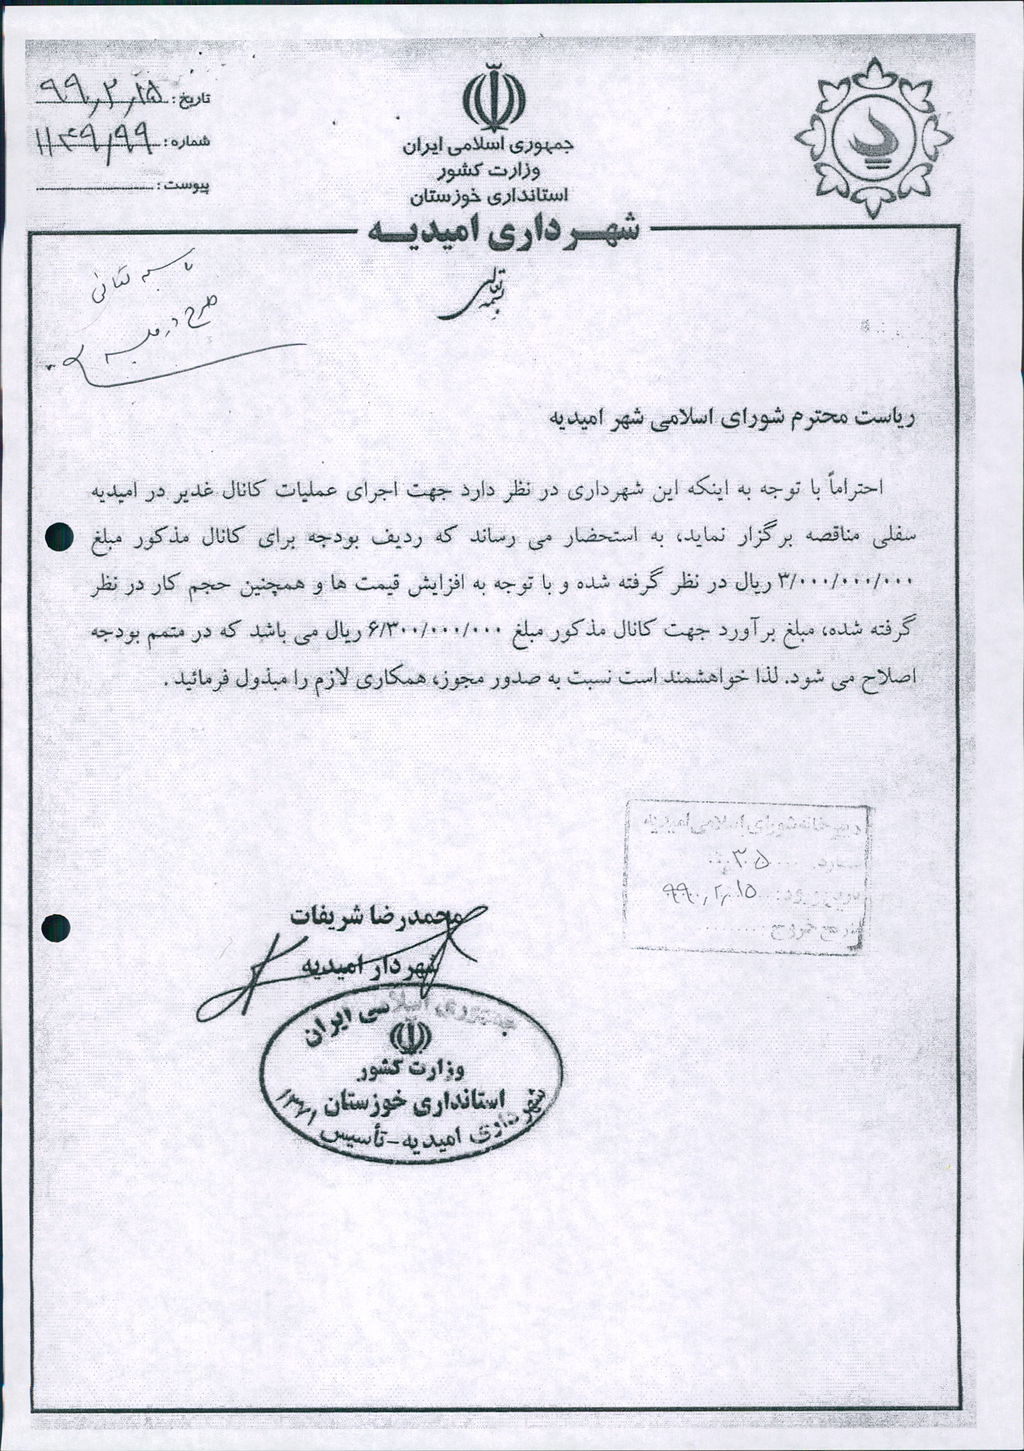 جمهوری اسلامی ایران
وزارت کشور
استانداری خوزستان
شهرداری امیدیه
تاریخ : ۹۹,۲,۱۵
شماره : ۱۱۴۹/۹۹
پیوست :
بسمه تعالی
باسمه تعالی
طرح در جلسه
ریاست محترم شورای اسلامی شهر امیدیه
احتراماً با توجه به اینکه این شهرداری در نظر دارد جهت اجرای عملیات کانال غدیر در امیدیه
سفلی مناقصه برگزار نماید، به استحضار می رساند که ردیف بودجه برای کانال مذکور مبلغ
۳/۰۰۰/۰۰۰/۰۰۰ ریال در نظر گرفته شده و با توجه به افزایش قیمت ها و همچنین حجم کار در نظر
گرفته شده، مبلغ برآورد جهت کانال مذکور مبلغ ۶/۳۰۰/۰۰۰/۰۰۰ ریال می باشد که در متمم بودجه
اصلاح می شود. لذا خواهشمند است نسبت به صدور مجوز، همکاری لازم را مبذول فرمائید .
۹۹,۲,۱۵
محمدرضا شریفات
شهردار امیدیه
جمهوری اسلامی ایران
وزارت کشور
استانداری خوزستان
شهرداری امیدیه-تأسیس ۱۳۷۱